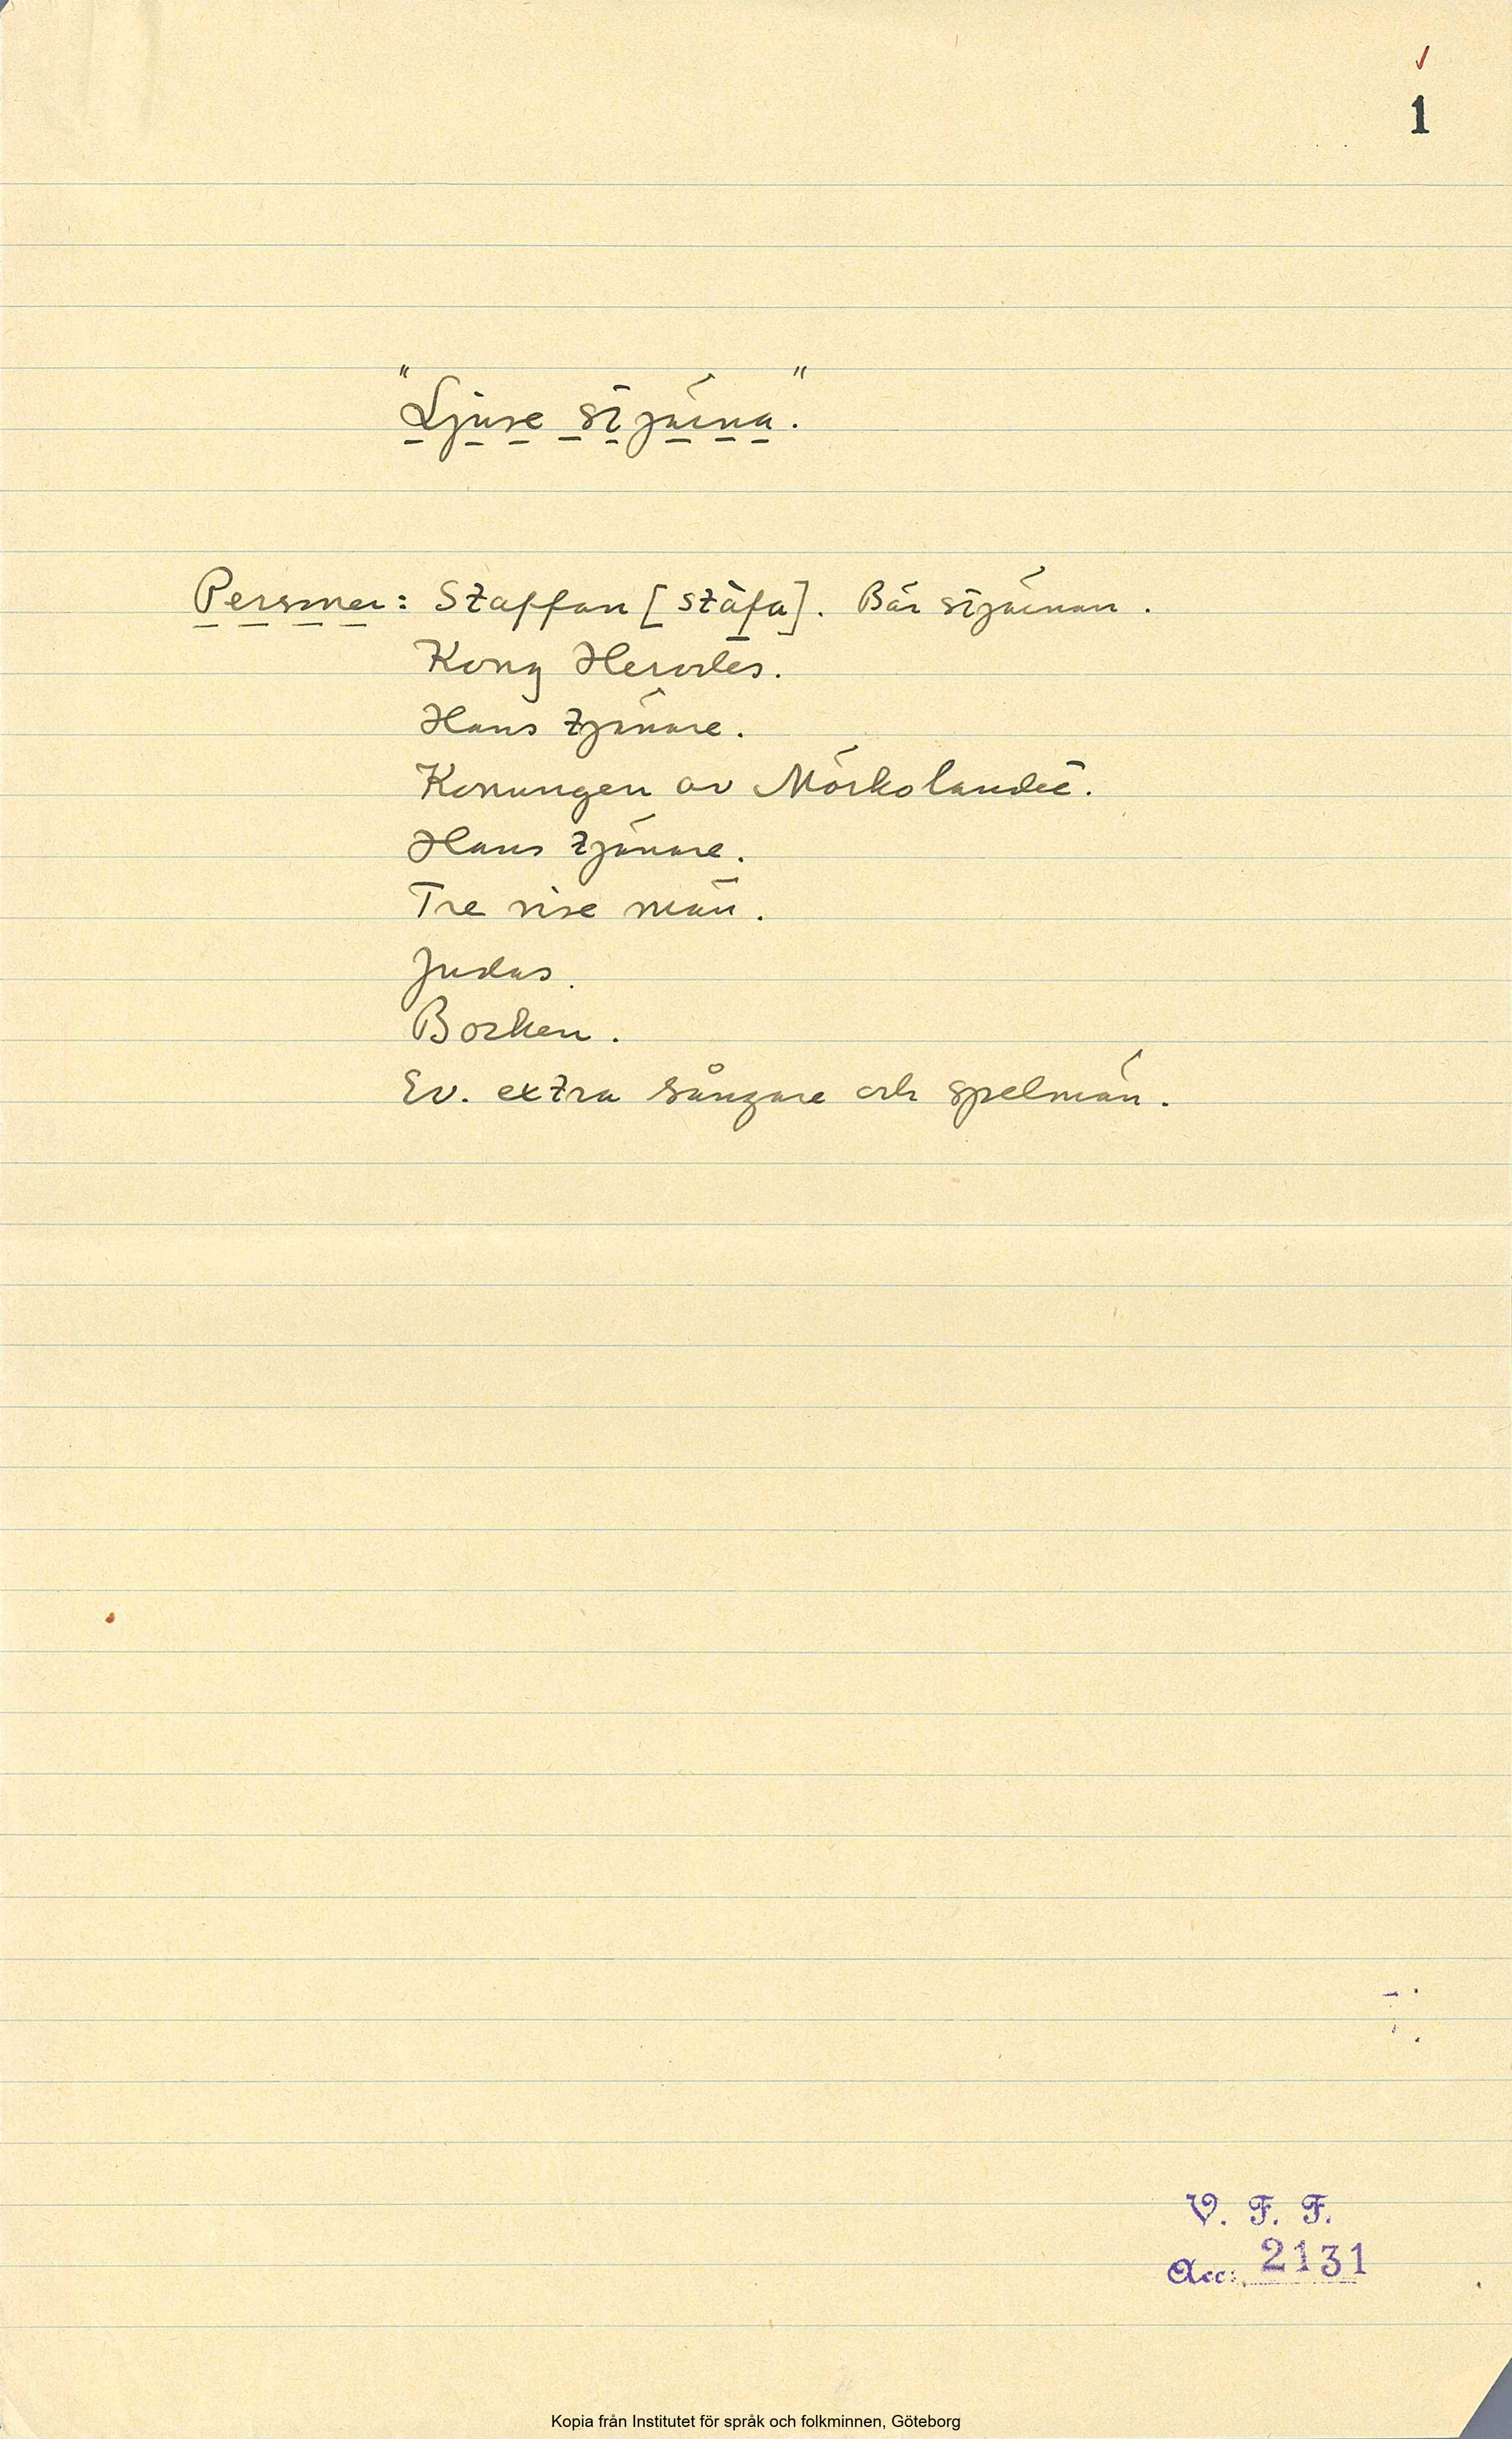 1
"Ljuse stjärna."
Personer: Staffan [stàfa]. Bär stjärnan.
Kong Herodes.
Hans tjänare.
Konungen av Mörkolandet.
Hans tjänare.
Tre vise män.
Judas.
Bocken.
Ev. extra sångare och spelmän.
V. F. F.
Acc: 2131
Kopia från Institutet för språk och folkminnen, Göteborg